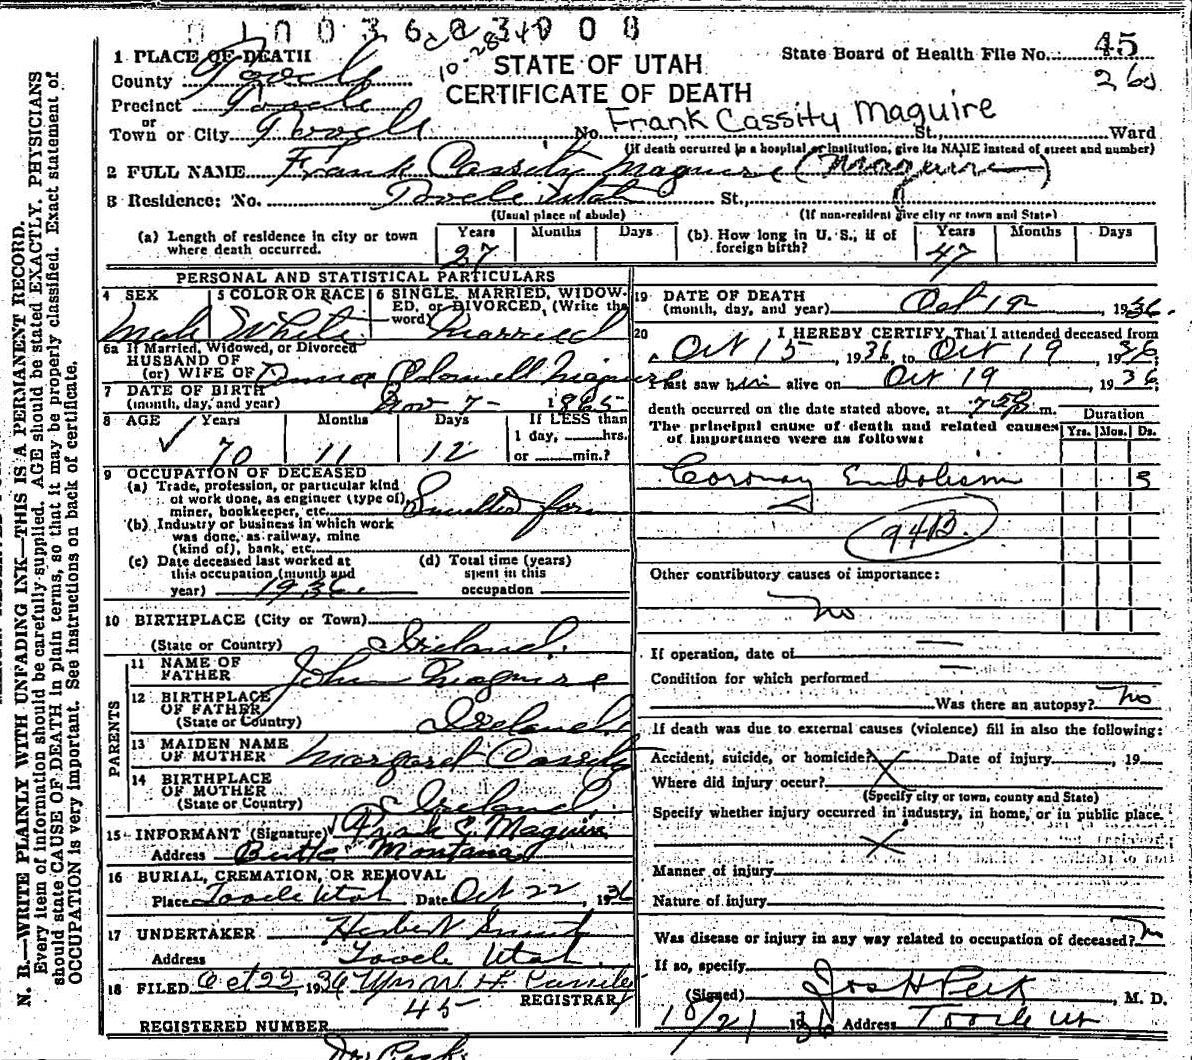 0100368234008
10-28
STATE OF UTAH
CERTIFICATE OF DEATH
State Board of Health File No. 45
260
1 PLACE OF DEATH
County Tooele
Precinct Tooele
or
Town or City Tooele No. St., Ward
Frank Cassity Maguire
(If death occurred in a hospital or institution, give its NAME instead of street and number)
2 FULL NAME Frank Cassity Maguire (Maguire)
3 Residence: No. Tooele Utah St.,
(Usual place of abode) (If non-resident give city or town and State)
(a) Length of residence in city or town where death occurred. Years 27 Months Days
(b) How long in U. S., if of foreign birth? Years 47 Months Days
PERSONAL AND STATISTICAL PARTICULARS
4 SEX Male
5 COLOR OR RACE White
6 SINGLE, MARRIED, WIDOWED, or DIVORCED, (Write the word) Married
6a If Married, Widowed, or Divorced
HUSBAND OF
(or) WIFE OF
7 DATE OF BIRTH
(month, day, and year) Nov 7- 1865
8 AGE Years 70 Months 11 Days 12 If LESS than
1 day, hrs.
or min.?
9 OCCUPATION OF DECEASED
(a) Trade, profession, or particular kind
of work done, as engineer (type of),
miner, bookkeeper, etc. Smelter
(b) Industry or business in which work
was done, as railway, mine
(kind of), bank, etc.
(c) Date deceased last worked at
this occupation (month and
year) 1936
(d) Total time (years)
spent in this
occupation
10 BIRTHPLACE (City or Town)
(State or Country) Ireland
PARENTS
11 NAME OF
FATHER John Maguire
12 BIRTHPLACE
OF FATHER
(State or Country) Ireland
13 MAIDEN NAME
OF MOTHER Margaret Cassity
14 BIRTHPLACE
OF MOTHER
(State or Country) Ireland
15 INFORMANT (Signature) Frank E. Maguire
Address Butte Montana
16 BURIAL, CREMATION, OR REMOVAL
Place Tooele Utah Date Oct 22, 1936
17 UNDERTAKER Herbert
Address Tooele Utah
18 FILED Oct 22, 1936 Mrs W. H.
REGISTRAR
45
REGISTERED NUMBER
Dr. Peck
19 DATE OF DEATH
(month, day, and year) Oct 19, 1936.
20 I HEREBY CERTIFY, That I attended deceased from
Oct 15, 1936, to Oct 19, 1936
I last saw him alive on Oct 19, 1936
death occurred on the date stated above, at m.
The principal cause of death and related causes
of importance were as follows:
Duration
Yrs. Mos. Ds.
Coronary Embolism 5
94B
Other contributory causes of importance:
No
If operation, date of —
Condition for which performed —
Was there an autopsy? No
If death was due to external causes (violence) fill in also the following:
Accident, suicide, or homicide? X Date of injury , 19
Where did injury occur?
(Specify city or town, county and State)
Specify whether injury occurred in industry, in home, or in public place.
X
Manner of injury
Nature of injury
Was disease or injury in any way related to occupation of deceased?
If so, specify
(Signed) Jos H Peck, M. D.
10/21 1936 Address Tooele Ut
N. B.—WRITE PLAINLY WITH UNFADING INK—THIS IS A PERMANENT RECORD.
Every item of information should be carefully supplied. AGE should be stated EXACTLY. PHYSICIANS
should state CAUSE OF DEATH in plain terms, so that it may be properly classified. Exact statement of
OCCUPATION is very important. See instructions on back of certificate.